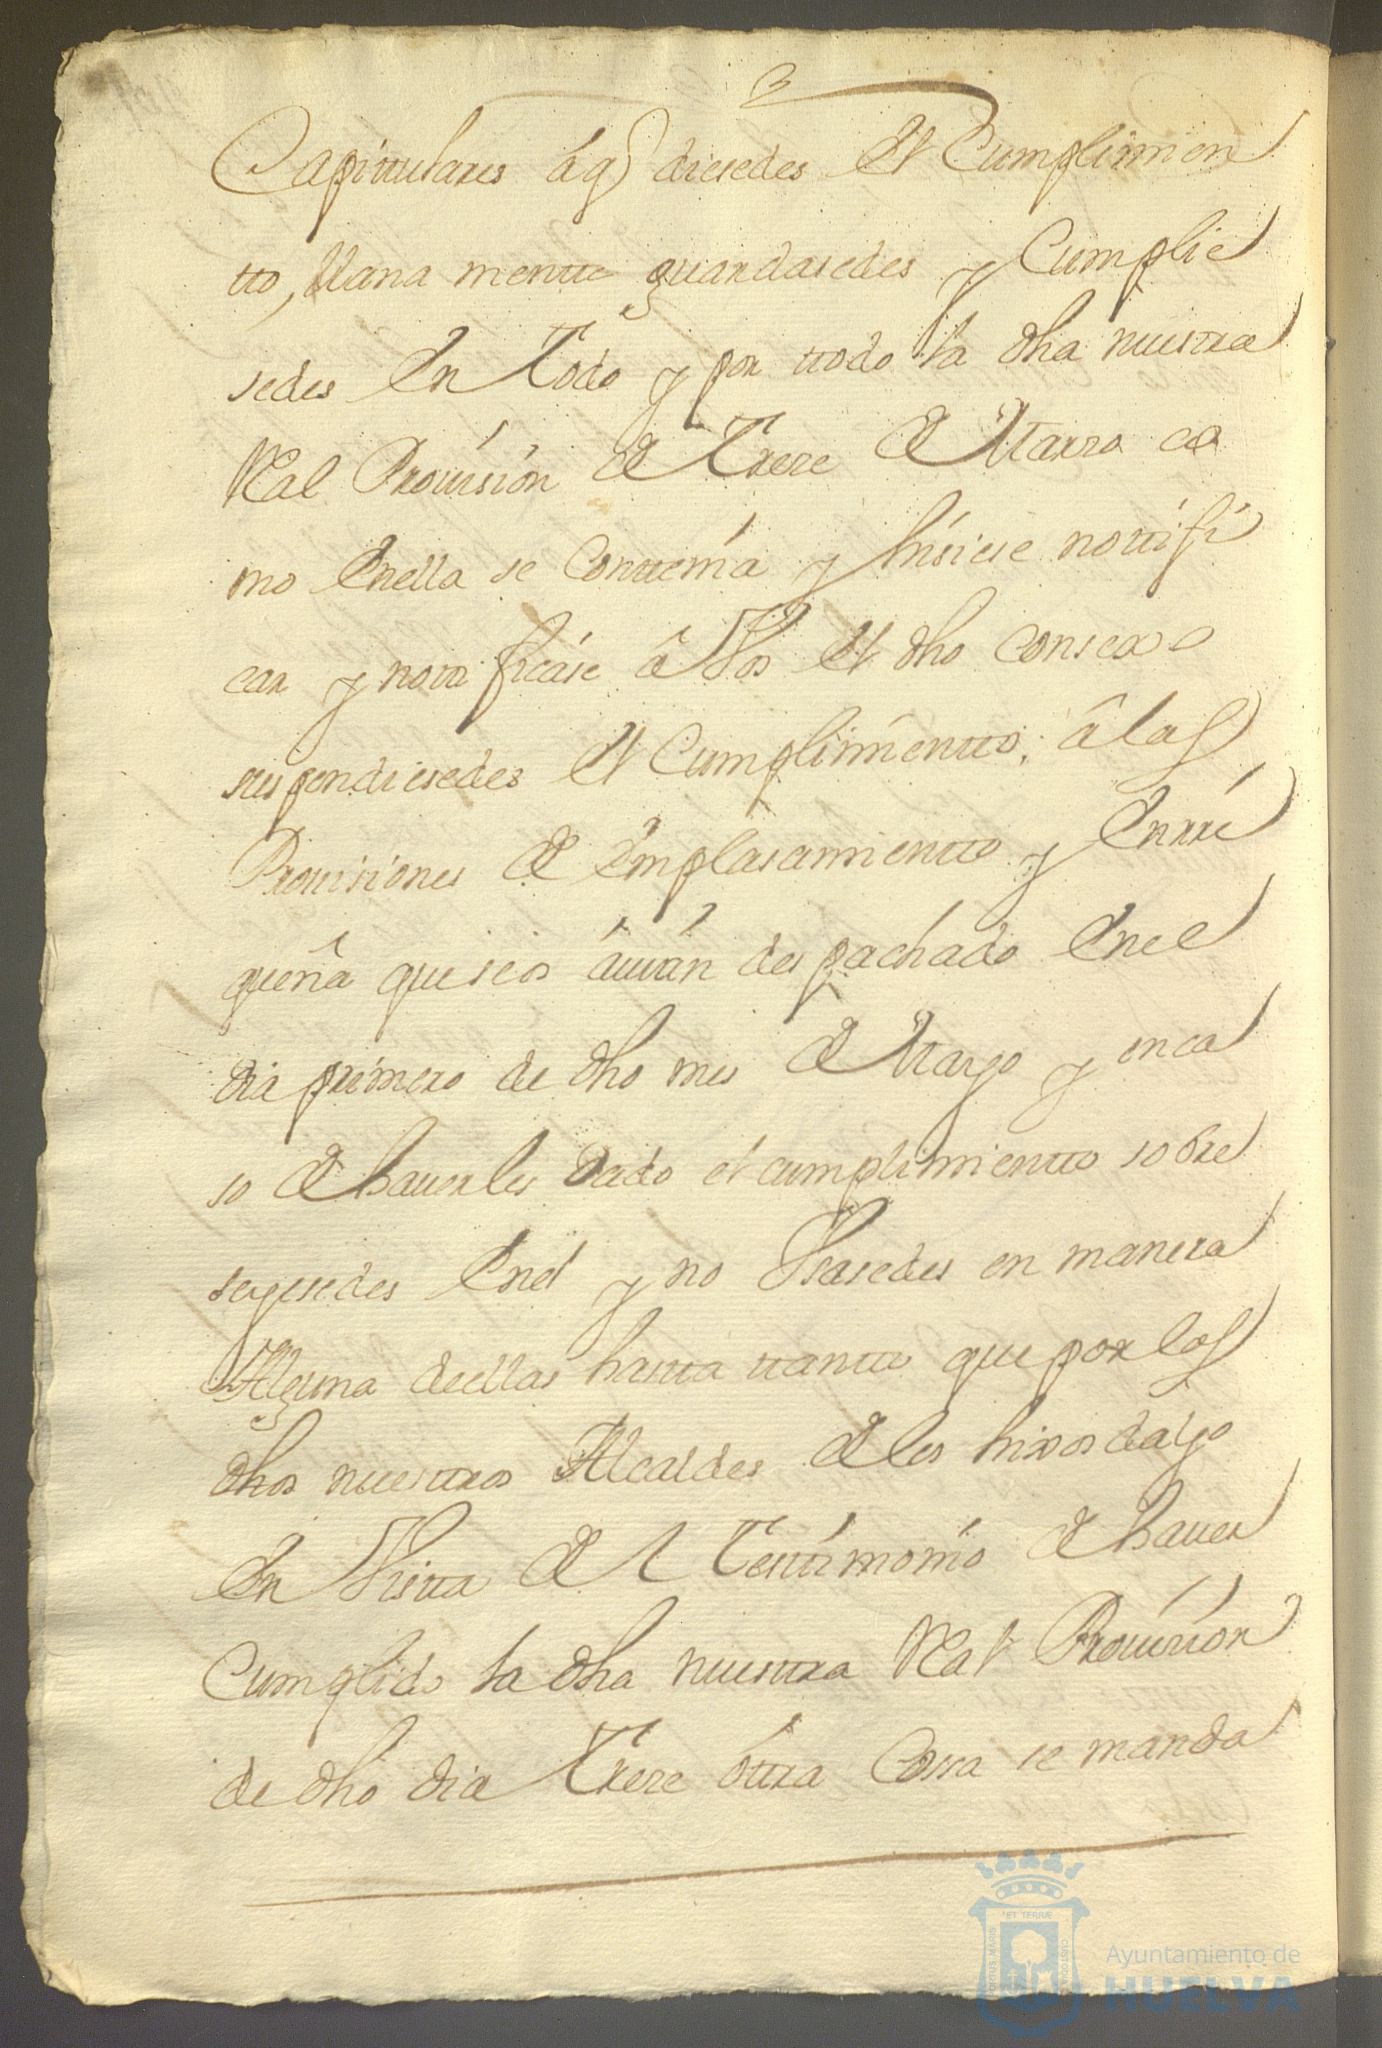 Capittulares áq diesedes el Cumplimien
tto, llana mentte guardasedes y Cumplie
sedes En Todo y por ttodo la dha nuestra
Real Provisión de Treze de Marzo co
mo Enella se Conttenía y hisiese nottifi
car y nottificáse â Vos el dho consexo
suspendiesedes el Cumplimientto, â las
Provisiones de Emplasamientto y Enrri
queña que seos avián despachado Enel
dia primero de dho mes de Mayo y enca
so de haverles dado el cumplimientto sobre
seyesedes Enel y no Vsasedes en manera
Alguna deellas hastta ttantto que por los
dhos nuesttros Alcaldes de los hixosdalgo
En Vistta de el Testtimonio de haver
Cumplido la dha nuesttra Real Provisión
de dho dia Treze óttra Cossa se manda
ET TERRÆ
PORTUS MARIS
CUSTODIA
Ayuntamiento de
HUELVA